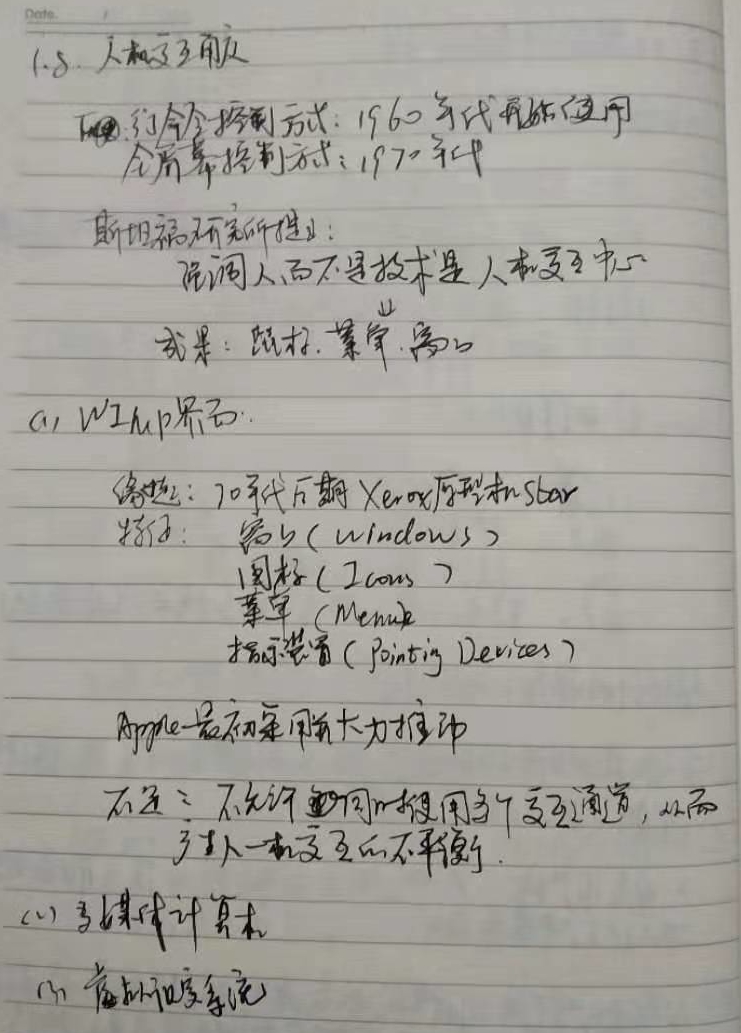 Date. /
1.8. 人机交互角度
行命令控制方式：1960年代开始使用
全屏幕控制方式：1970年代
斯坦福研究所提出：
强调人而不是技术是人机交互中心
成果：鼠标.菜单.窗口
(1) WIMP界面.
缘起：70年代后期 Xerox原型机Star
特征：窗口(Windows)
图标(Icons)
菜单(Menu)
指示装置(Pointing Devices)
Apple最初采用并大力推动
不足：不允许同时使用多个交互通道，从而
产生人-机交互的不平衡.
(2) 多媒体计算机
(3) 虚拟现实系统